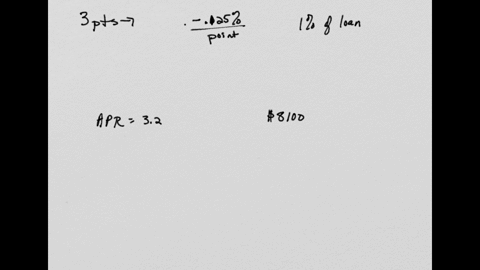 3 pts → -.125% / point 1% of loan
APR = 3.2 $8100